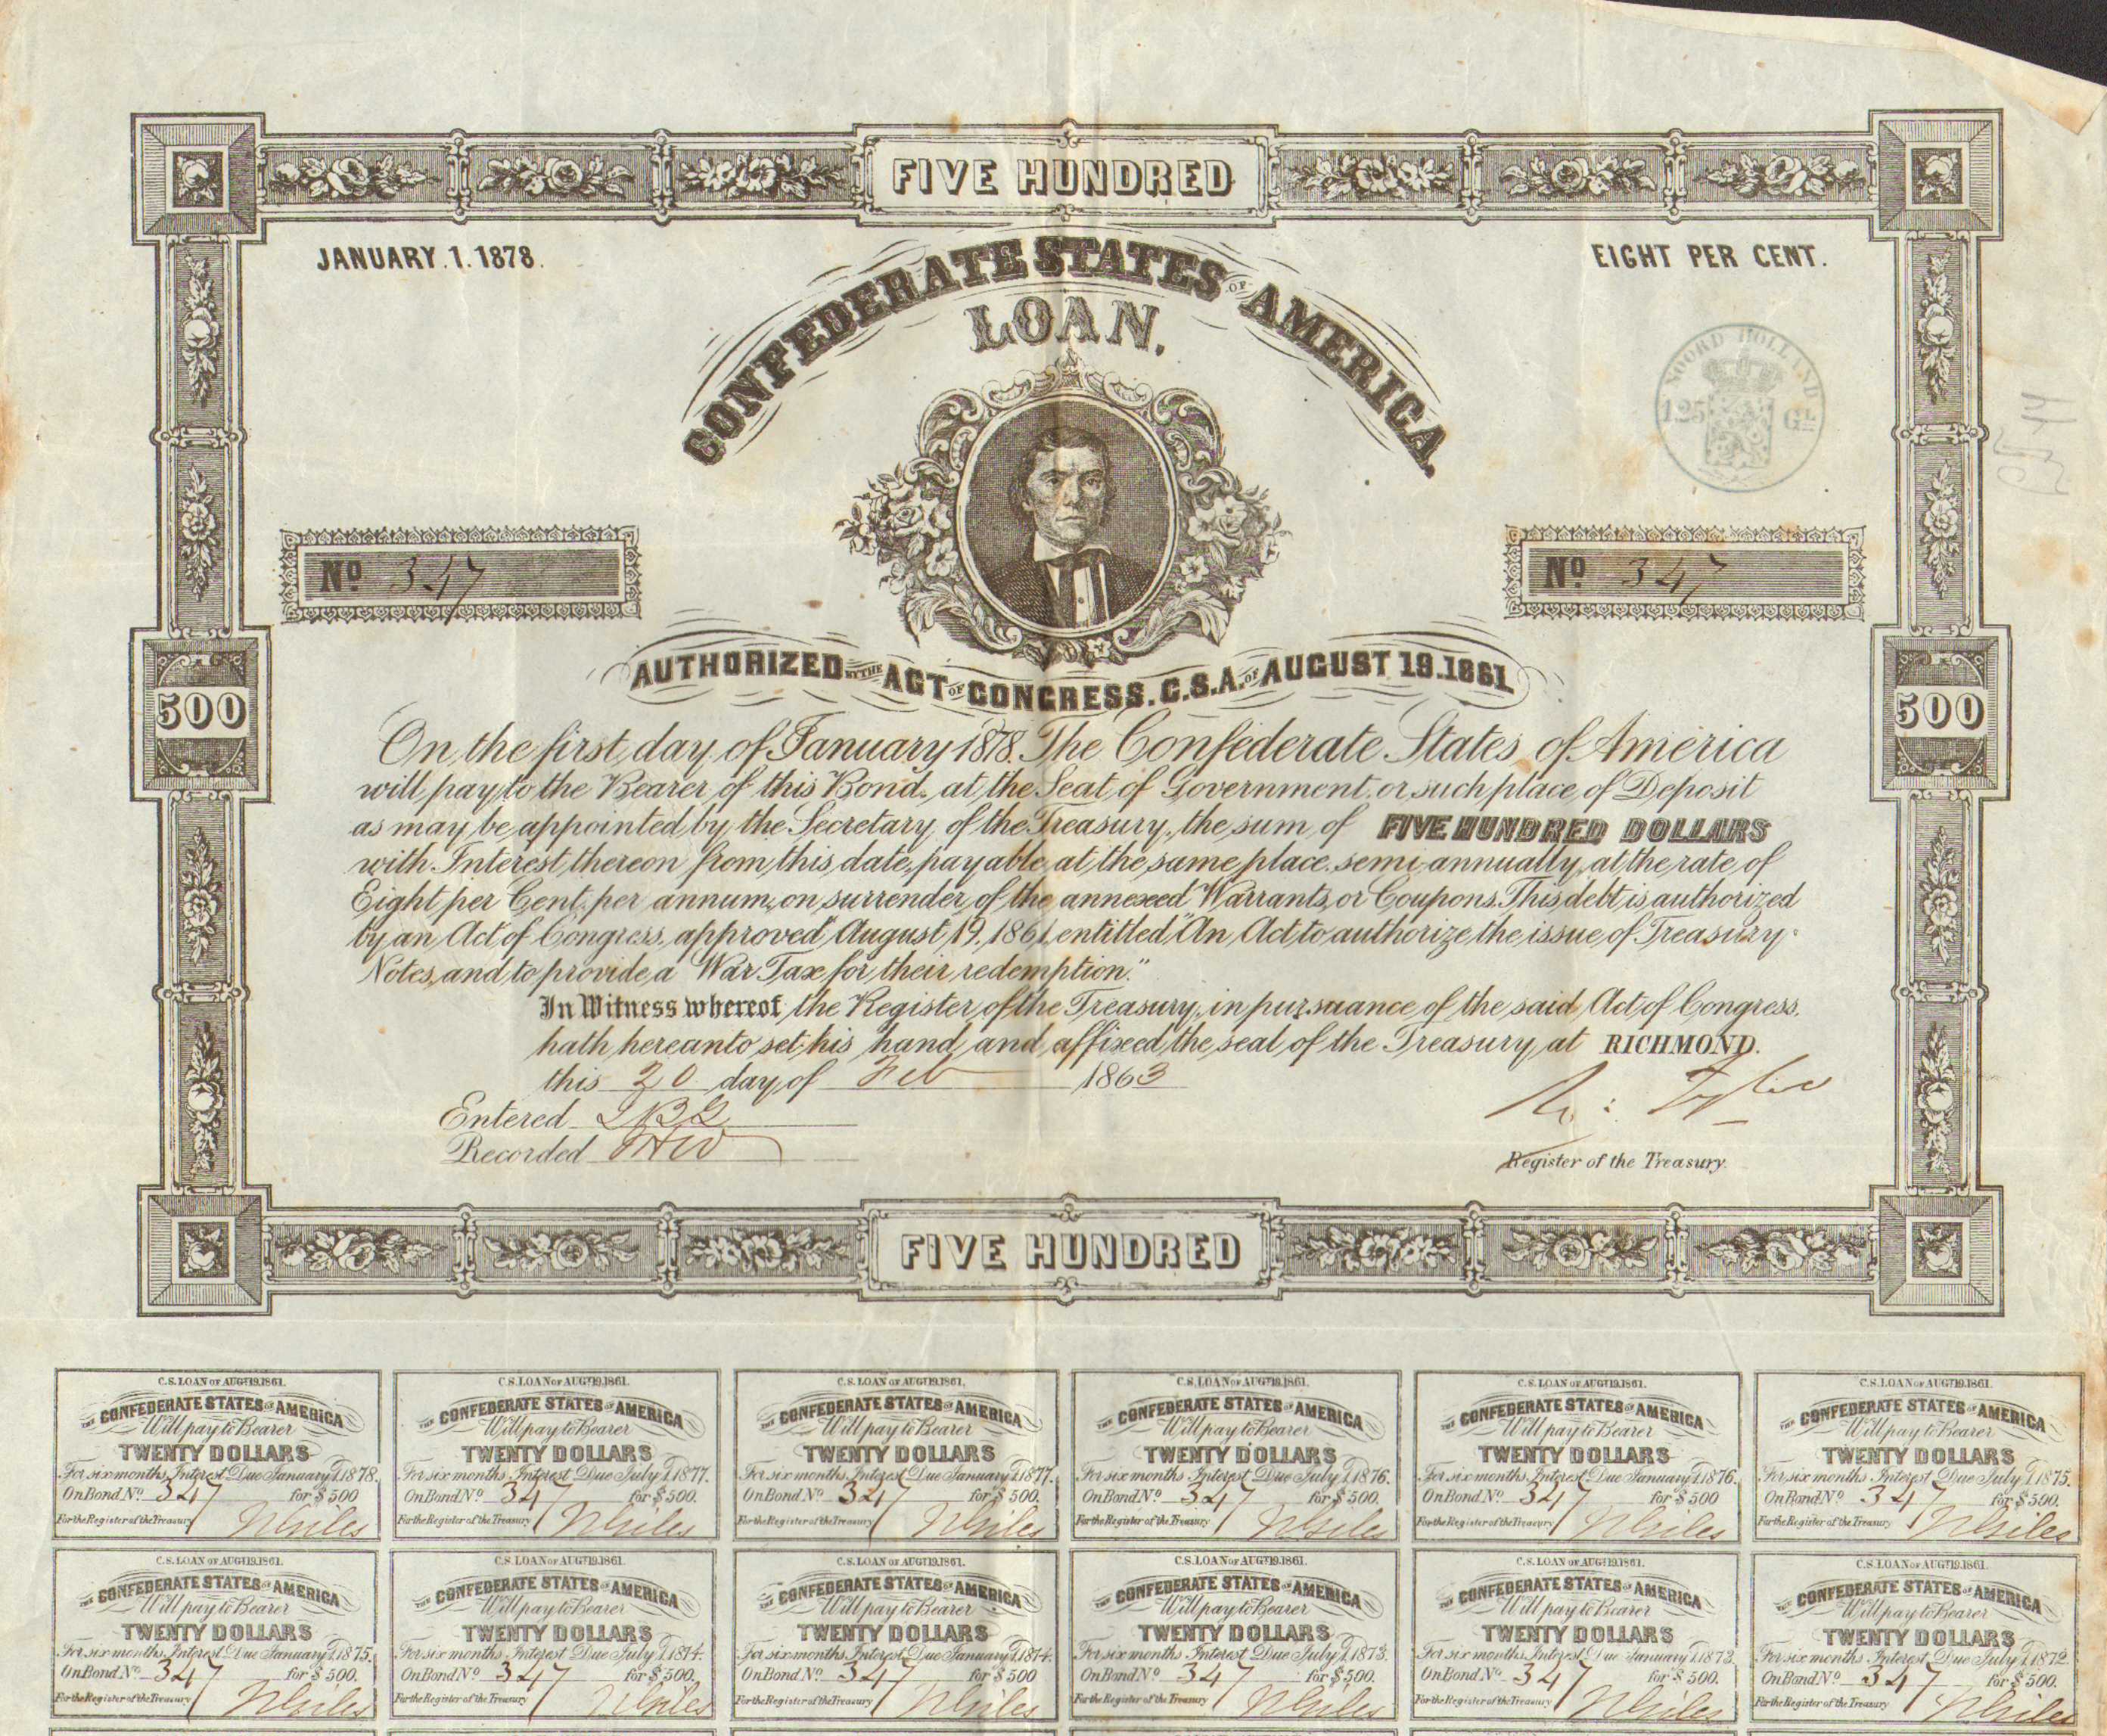 FIVE HUNDRED
JANUARY.1.1878.
EIGHT PER CENT.
CONFEDERATE STATES OF AMERICA
LOAN,
NOORD HOLLAND
125 GL
No 347
No 347
AUTHORIZED BY THE ACT OF CONGRESS. C.S.A. OF AUGUST 19.1861
500
500
On the first day of January 1878. The Confederate States of America
will pay to the Bearer of this Bond, at the Seat of Government, or such place of Deposit
as may be appointed by the Secretary of the Treasury, the sum of FIVE HUNDRED DOLLARS
with Interest thereon from this date, payable at the same place semi-annually, at the rate of
Eight per Cent. per annum, on surrender of the annexed Warrants or Coupons. This debt is authorized
by an Act of Congress, approved August 19, 1861, entitled "An Act to authorize the issue of Treasury
Notes, and to provide a War Tax for their redemption."
In Witness whereof the Register of the Treasury, in pursuance of the said Act of Congress,
hath hereunto set his hand and affixed the seal of the Treasury, at RICHMOND.
this 20 day of Feb 1863
Entered
Recorded
Register of the Treasury.
FIVE HUNDRED
C.S. LOAN OF AUGT 19.1861. C.S. LOAN OF AUGT 19.1861. C.S. LOAN OF AUGT 19.1861. C.S. LOAN OF AUGT 19.1861. C.S. LOAN OF AUGT 19.1861. C.S. LOAN OF AUGT 19.1861.
THE CONFEDERATE STATES OF AMERICA THE CONFEDERATE STATES OF AMERICA THE CONFEDERATE STATES OF AMERICA THE CONFEDERATE STATES OF AMERICA THE CONFEDERATE STATES OF AMERICA THE CONFEDERATE STATES OF AMERICA
Will pay to Bearer Will pay to Bearer Will pay to Bearer Will pay to Bearer Will pay to Bearer Will pay to Bearer
TWENTY DOLLARS TWENTY DOLLARS TWENTY DOLLARS TWENTY DOLLARS TWENTY DOLLARS TWENTY DOLLARS
For six months Interest Due January 1.1878. For six months Interest Due July 1.1877. For six months Interest Due January 1.1877. For six months Interest Due July 1.1876. For six months Interest Due January 1.1876. For six months Interest Due July 1.1875.
On Bond No 347 for $500 On Bond No 347 for $500. On Bond No 347 for $500. On Bond No 347 for $500. On Bond No 347 for $500 On Bond No 347 for $500.
For the Register of the Treasury For the Register of the Treasury For the Register of the Treasury For the Register of the Treasury For the Register of the Treasury For the Register of the Treasury
C.S. LOAN OF AUGT 19.1861. C.S. LOAN OF AUGT 19.1861. C.S. LOAN OF AUGT 19.1861. C.S. LOAN OF AUGT 19.1861. C.S. LOAN OF AUGT 19.1861. C.S. LOAN OF AUGT 19.1861.
THE CONFEDERATE STATES OF AMERICA THE CONFEDERATE STATES OF AMERICA THE CONFEDERATE STATES OF AMERICA THE CONFEDERATE STATES OF AMERICA THE CONFEDERATE STATES OF AMERICA THE CONFEDERATE STATES OF AMERICA
Will pay to Bearer Will pay to Bearer Will pay to Bearer Will pay to Bearer Will pay to Bearer Will pay to Bearer
TWENTY DOLLARS TWENTY DOLLARS TWENTY DOLLARS TWENTY DOLLARS TWENTY DOLLARS TWENTY DOLLARS
For six months Interest Due January 1.1875. For six months Interest Due July 1.1874. For six months Interest Due January 1.1874. For six months Interest Due July 1.1873. For six months Interest Due January 1.1873. For six months Interest Due July 1.1872.
On Bond No 347 for $500. On Bond No 347 for $500. On Bond No 347 for $500 On Bond No 347 for $500. On Bond No 347 for $500. On Bond No 347 for $500.
For the Register of the Treasury For the Register of the Treasury For the Register of the Treasury For the Register of the Treasury For the Register of the Treasury For the Register of the Treasury